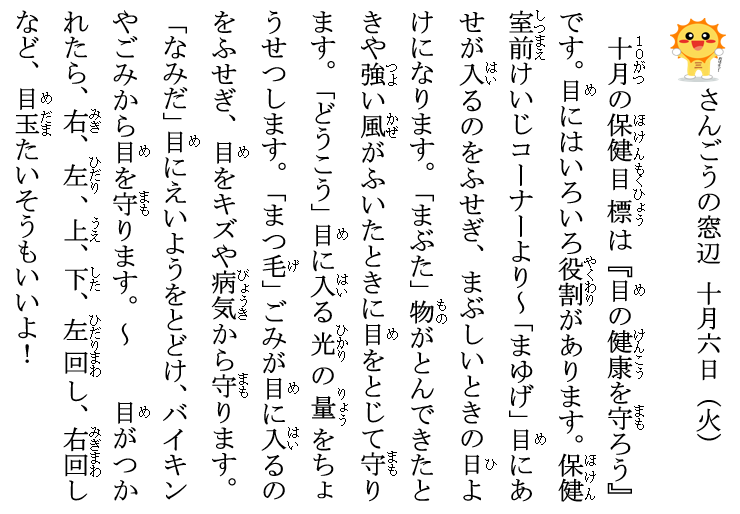 さんごうの窓辺　十月六日（火）
十月の保健目標は『目の健康を守ろう』
です。目にはいろいろ役割があります。保健
室前けいじコーナーより～「まゆげ」目にあ
せが入るのをふせぎ、まぶしいときの日よ
けになります。「まぶた」物がとんできたと
きや強い風がふいたときに目をとじて守り
ます。「どうこう」目に入る光の量をちょ
うせつします。「まつ毛」ごみが目に入るの
をふせぎ、目をキズや病気から守ります。
「なみだ」目にえいようをとどけ、バイキン
やごみから目を守ります。～　目がつか
れたら、右、左、上、下、左回し、右回し
など、目玉たいそうもいいよ！